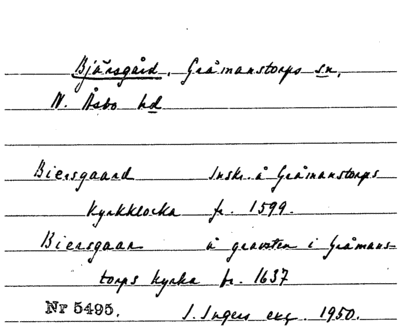 Bjärsgård, Gråmanstorps sn,
N. Åsbo hd
Biersgaard Inskr. å Gråmanstorps
kyrkklocka fr. 1599.
Biersgaar å gravsten i Gråmans-
torps kyrka fr. 1637
Nr 5495. I. Ingers exc. 1950.